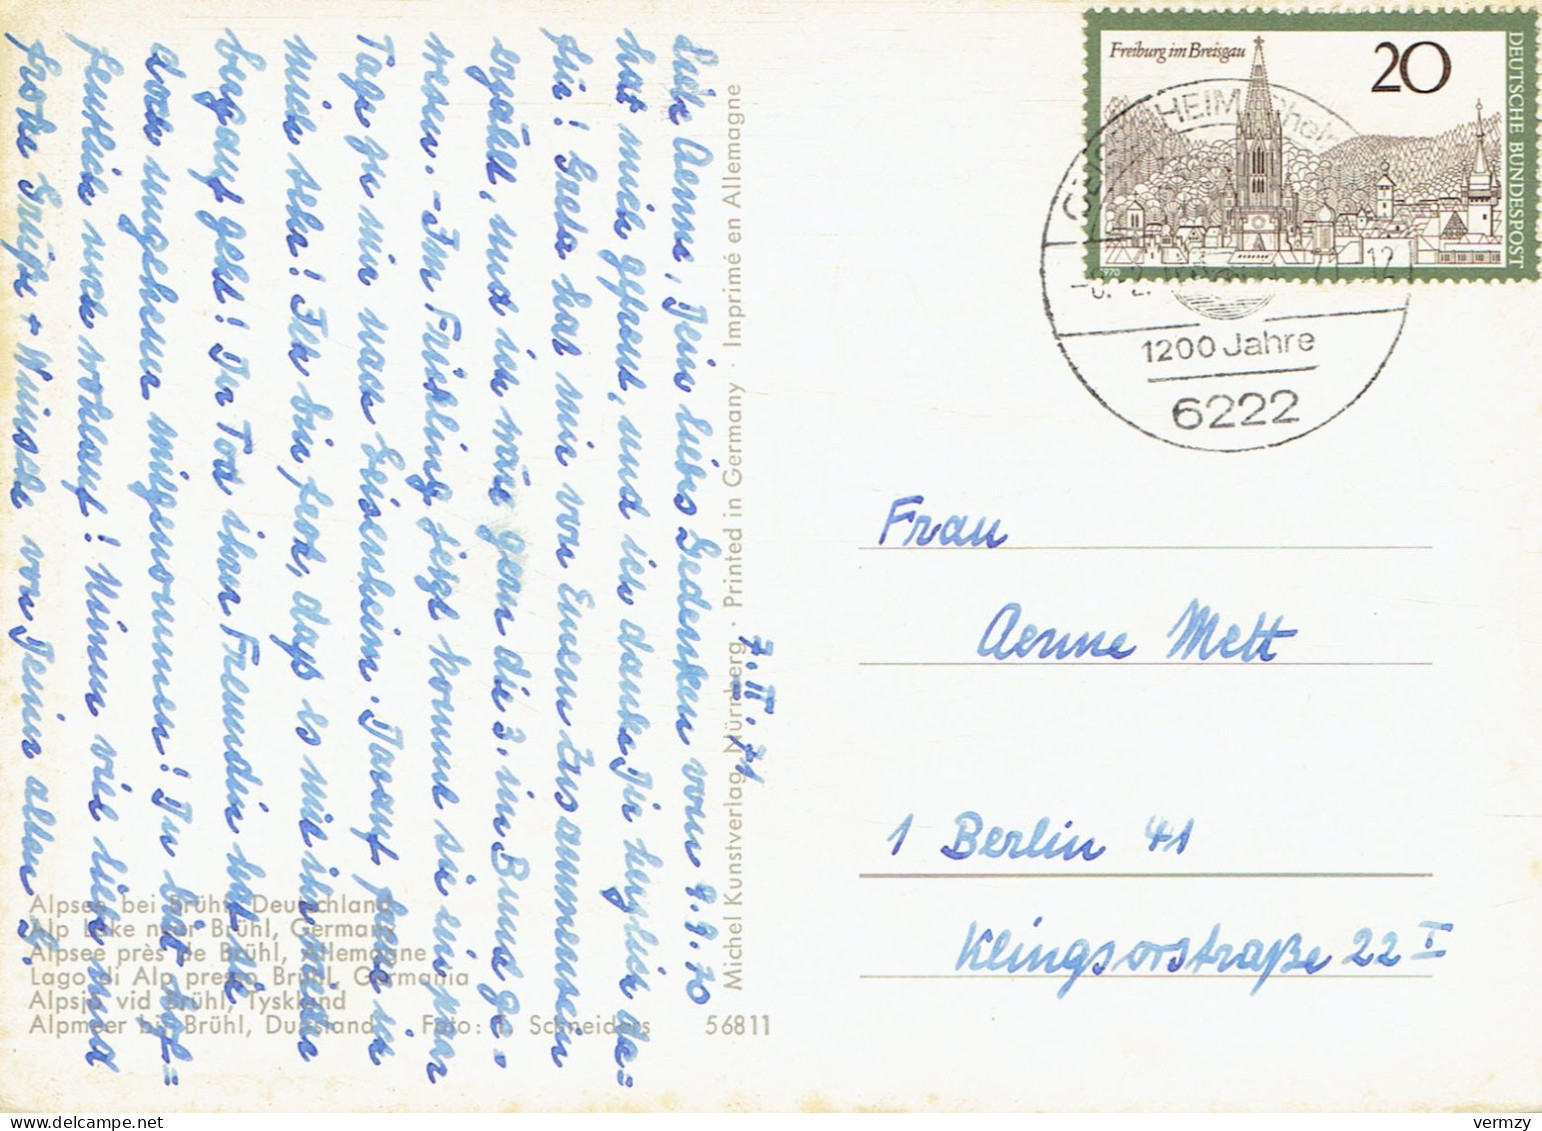 Freiburg im Breisgau
20
DEUTSCHE BUNDESPOST
1970
1200 Jahre
6222
7. II. 71
Liebe Aenne, Dein liebes Gedenken vom 9.9.70
hat mich gefreut, und ich danke Dir herzlich da=
für! Greta hat mir von Eurem Zusammensein
erzählt, und ich wäre gern die 3. im Bunde ge=
wesen. - Im Frühling jetzt kommt sie ein paar
Tage zu mir nach Geisenheim. Darauf freue ich
mich sehr! Ich bin froh, daß es mit ihr wieder
bergauf geht! Der Tod ihrer Freundin hat sie
doch ungeheuer mitgenommen! Du bist hof=
fentlich noch wohlauf! Nimm viel liebe und
frohe Grüße + Wünsche von Deiner alten
Frau
Aenne Mett
1 Berlin 41
Klingsorstraße 22 I
Michel Kunstverlag, Nürnberg · Printed in Germany · Imprimé en Allemagne
Alpsee bei Brühl, Deutschland
Alp Lake near Brühl, Germany
Alpsee près de Brühl, Allemagne
Lago di Alp presso Brühl, Germania
Alpsjö vid Brühl, Tyskland
Alpmeer bij Brühl, Duitsland Foto: Schneiders 56811